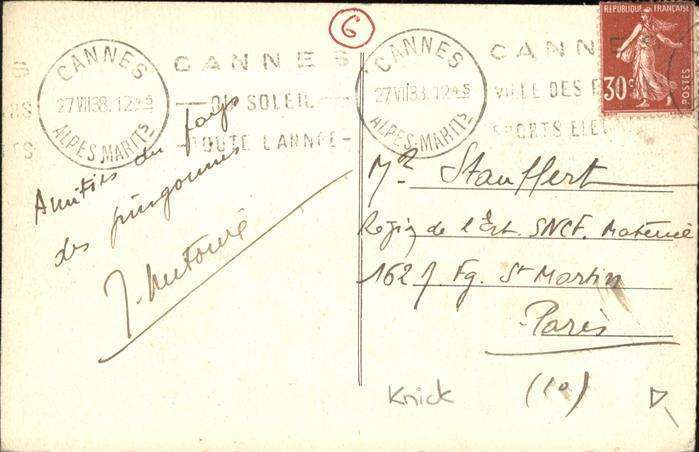 6
CANNES
27 VII 38. 12 45
ALPES-MARITS
CANNES
DU SOLEIL
TOUTE L'ANNÉE
CANNES
27 VII 38. 12 45
ALPES-MARITS
CANNES
VILLE DES
SPORTS ELE
RÉPUBLIQUE FRANÇAISE
30c
POSTES
Amitiés du pays
des
J. Antoine
Mr Stauffert
Région de l'Est. SNCF. Materiel
162 Fg. St Martin
Paris
(10)
Knick